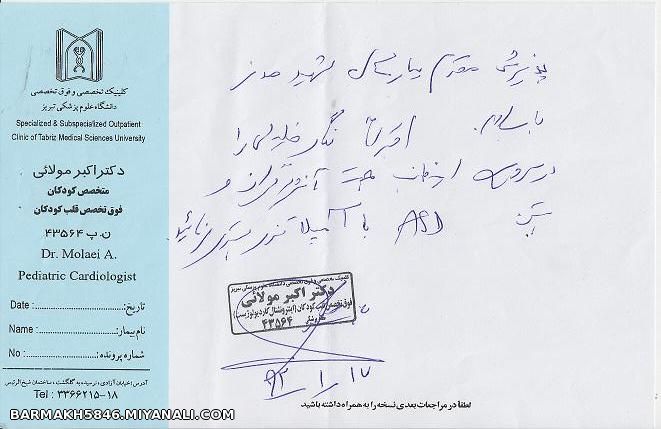 کلینیک تخصصی و فوق تخصصی
دانشگاه علوم پزشکی تبریز
Specialized & Subspecialized Outpatient
Clinic of Tabriz Medical Sciences University
دکتر اکبر مولائی
متخصص کودکان
فوق تخصص قلب کودکان
ن.پ ۴۳۵۶۴
Dr. Molaei A.
Pediatric Cardiologist
تاریخ: Date :
نام بیمار: Name :
شماره پرونده: No :
آدرس: خیابان آزادی، نرسیده به گلگشت، ساختمان شیخ‌الرئیس
Tel : ۳۳۶۶۲۱۵-۱۸
پذیرش محترم بیمارستان شهید مدنی
با سلام
نگار خلیلی را
جهت آنژیوگرافی و
بستن ASD با
کلینیک تخصصی و فوق تخصصی دانشگاه علوم پزشکی تبریز
دکتر اکبر مولائی
فوق تخصص قلب کودکان (اینترونشنال کاردیولوژیست)
۴۳۵۶۴
۹۳/۱/۱۷
لطفاً در مراجعات بعدی نسخه را به همراه داشته باشید
BARMAKH5846.MIYANALI.COM